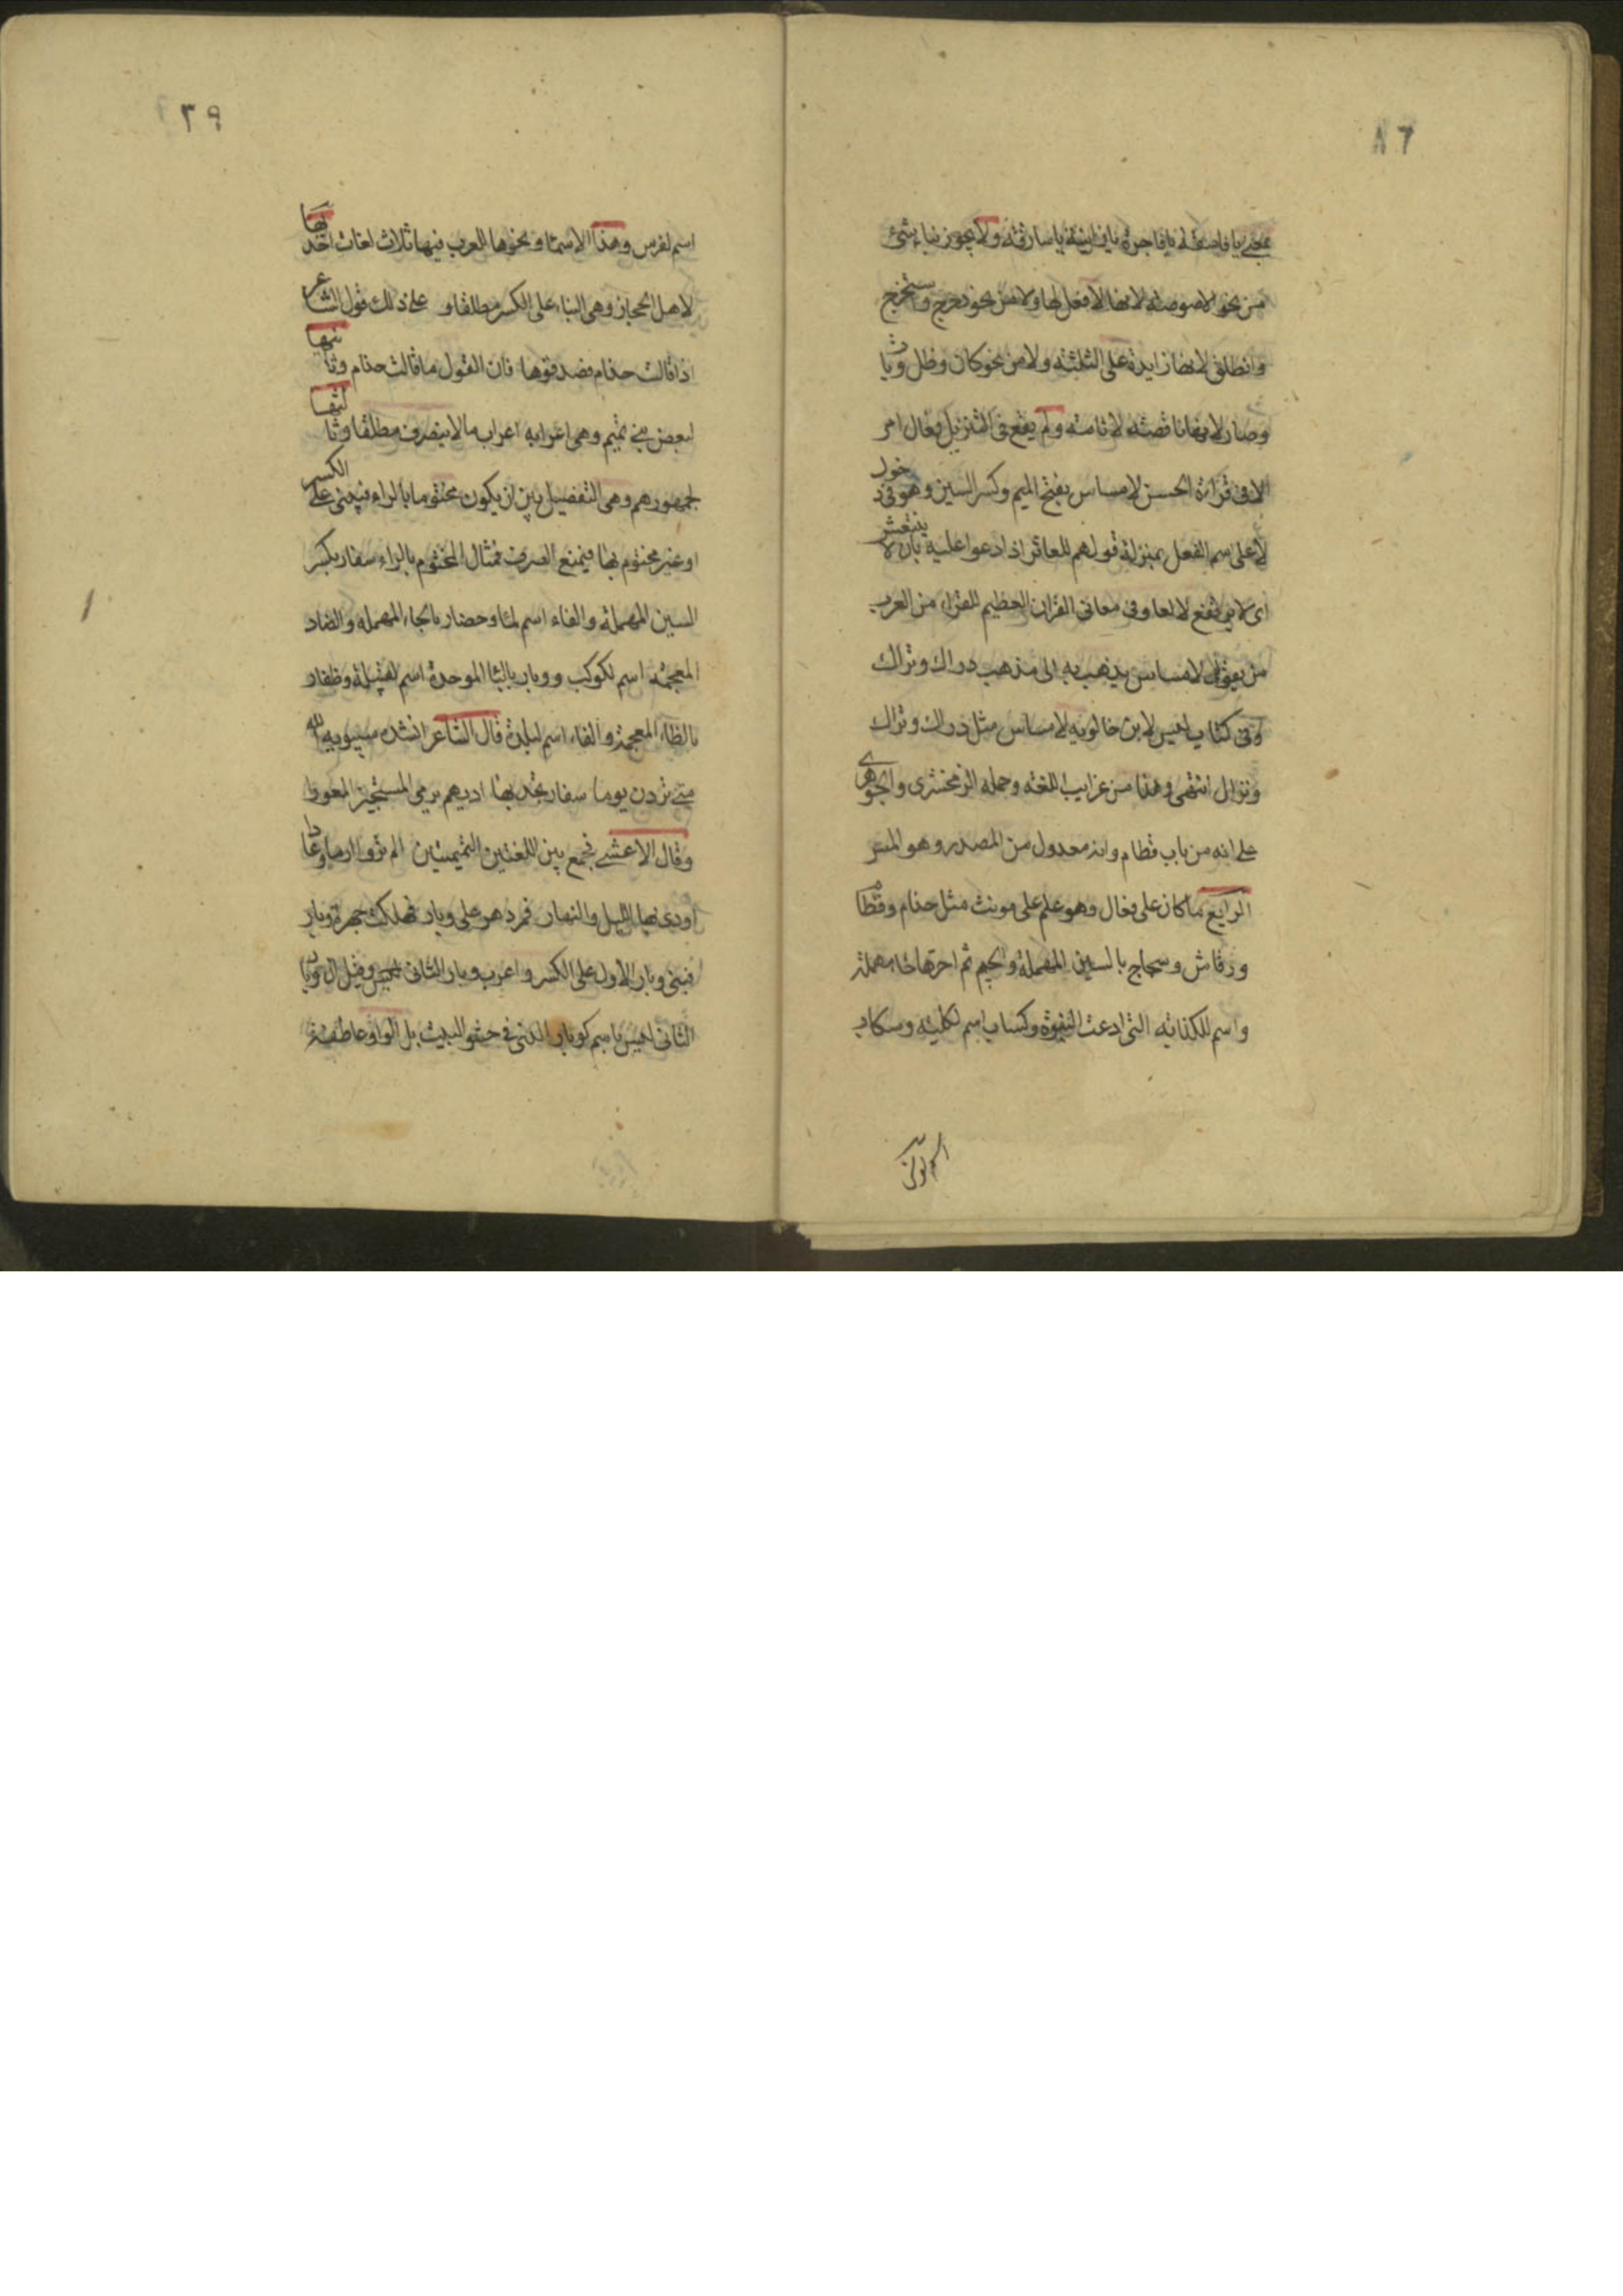 ٨٦
بمعنى يا فاسقة يا فاجرة يا زانية يا سارقة ولا يجوز بناء شيء
من نحو اللصوصية لانها لا فعل لها ولا من نحو دحرج واستخرج
وانطلق لانها زايدة على الثلثة ولا من نحو كان وظل وبات
وصار لانها ناقصة لا تامة ولم يقع في التنزيل فعال امر
الا في قراءة الحسن لا مساس بفتح الميم وكسر السين وهو في دخول
لا على اسم الفعل بمنزلة قولهم للعاثر اذا دعوا عليه بان لا ينتعش
اى لا يرتفع لا لعا وفى معانى القران العظيم للفراء من العرب
من يقول لا مساس يذهب به الى مذهب دراك وتراك
وفى كتاب ليس لابن خالويه لا مساس مثل دراك وتراك
ونزال انتهى وهذا من غرايب اللغة وحمله الزمخشرى والجوهرى
على انه من باب قطام وانه معدول من المصدر وهو المس
الرابع ما كان على فعال وهو علم على مونث مثل حذام وقطام
ورقاش وسجاح بالسين المهملة والجيم ثم اخرها حا مهملة
واسم للكذابة التى ادعت النبوة وكساب اسم لكلبة وسكاب
٣٩
اسم لفرس وهذا الاسما ونحوها للعرب فيها ثلاث لغات احدها
لاهل الحجاز وهى البناء على الكسر مطلقا و على ذلك قول الشاعر
اذا قالت حذام فصدقوها فان القول ما قالت حذام وثانيها
لبعض بنى تميم وهى اعرابه اعراب ما لا ينصرف مطلقا وثالثها
لجمهورهم وهى التفصيل بين ان يكون مختوما بالراء فيبنى على الكسر
او غير مختوم بها فيمنع الصرف فمثال المختوم بالراء سفار بكسر
السين المهملة والفاء اسم لما وحضار بالحاء المهملة والضاد
المعجمة اسم لكوكب ووبار بالبا الموحدة اسم لقبيلة وظفار
بالظاء المعجمة والفاء اسم لبلدة قال الشاعر انشده سيبويه
متى تردن يوما سفار تجد بها اديهم يرمى المستجيز المعورا
وقال الاعشى فجمع بين اللغتين التميميتين الم تروا ارما وعادا
اودى بها الليل والنهار فمر دهر على وبار فهلكت جهرة وبار
فبنى وبار الاول على الكسر واعرب وبار الثانى وقيل ان وبار
الثانى ليس باسم كوبار الذى فى حشو البيت بل الواو عاطفة